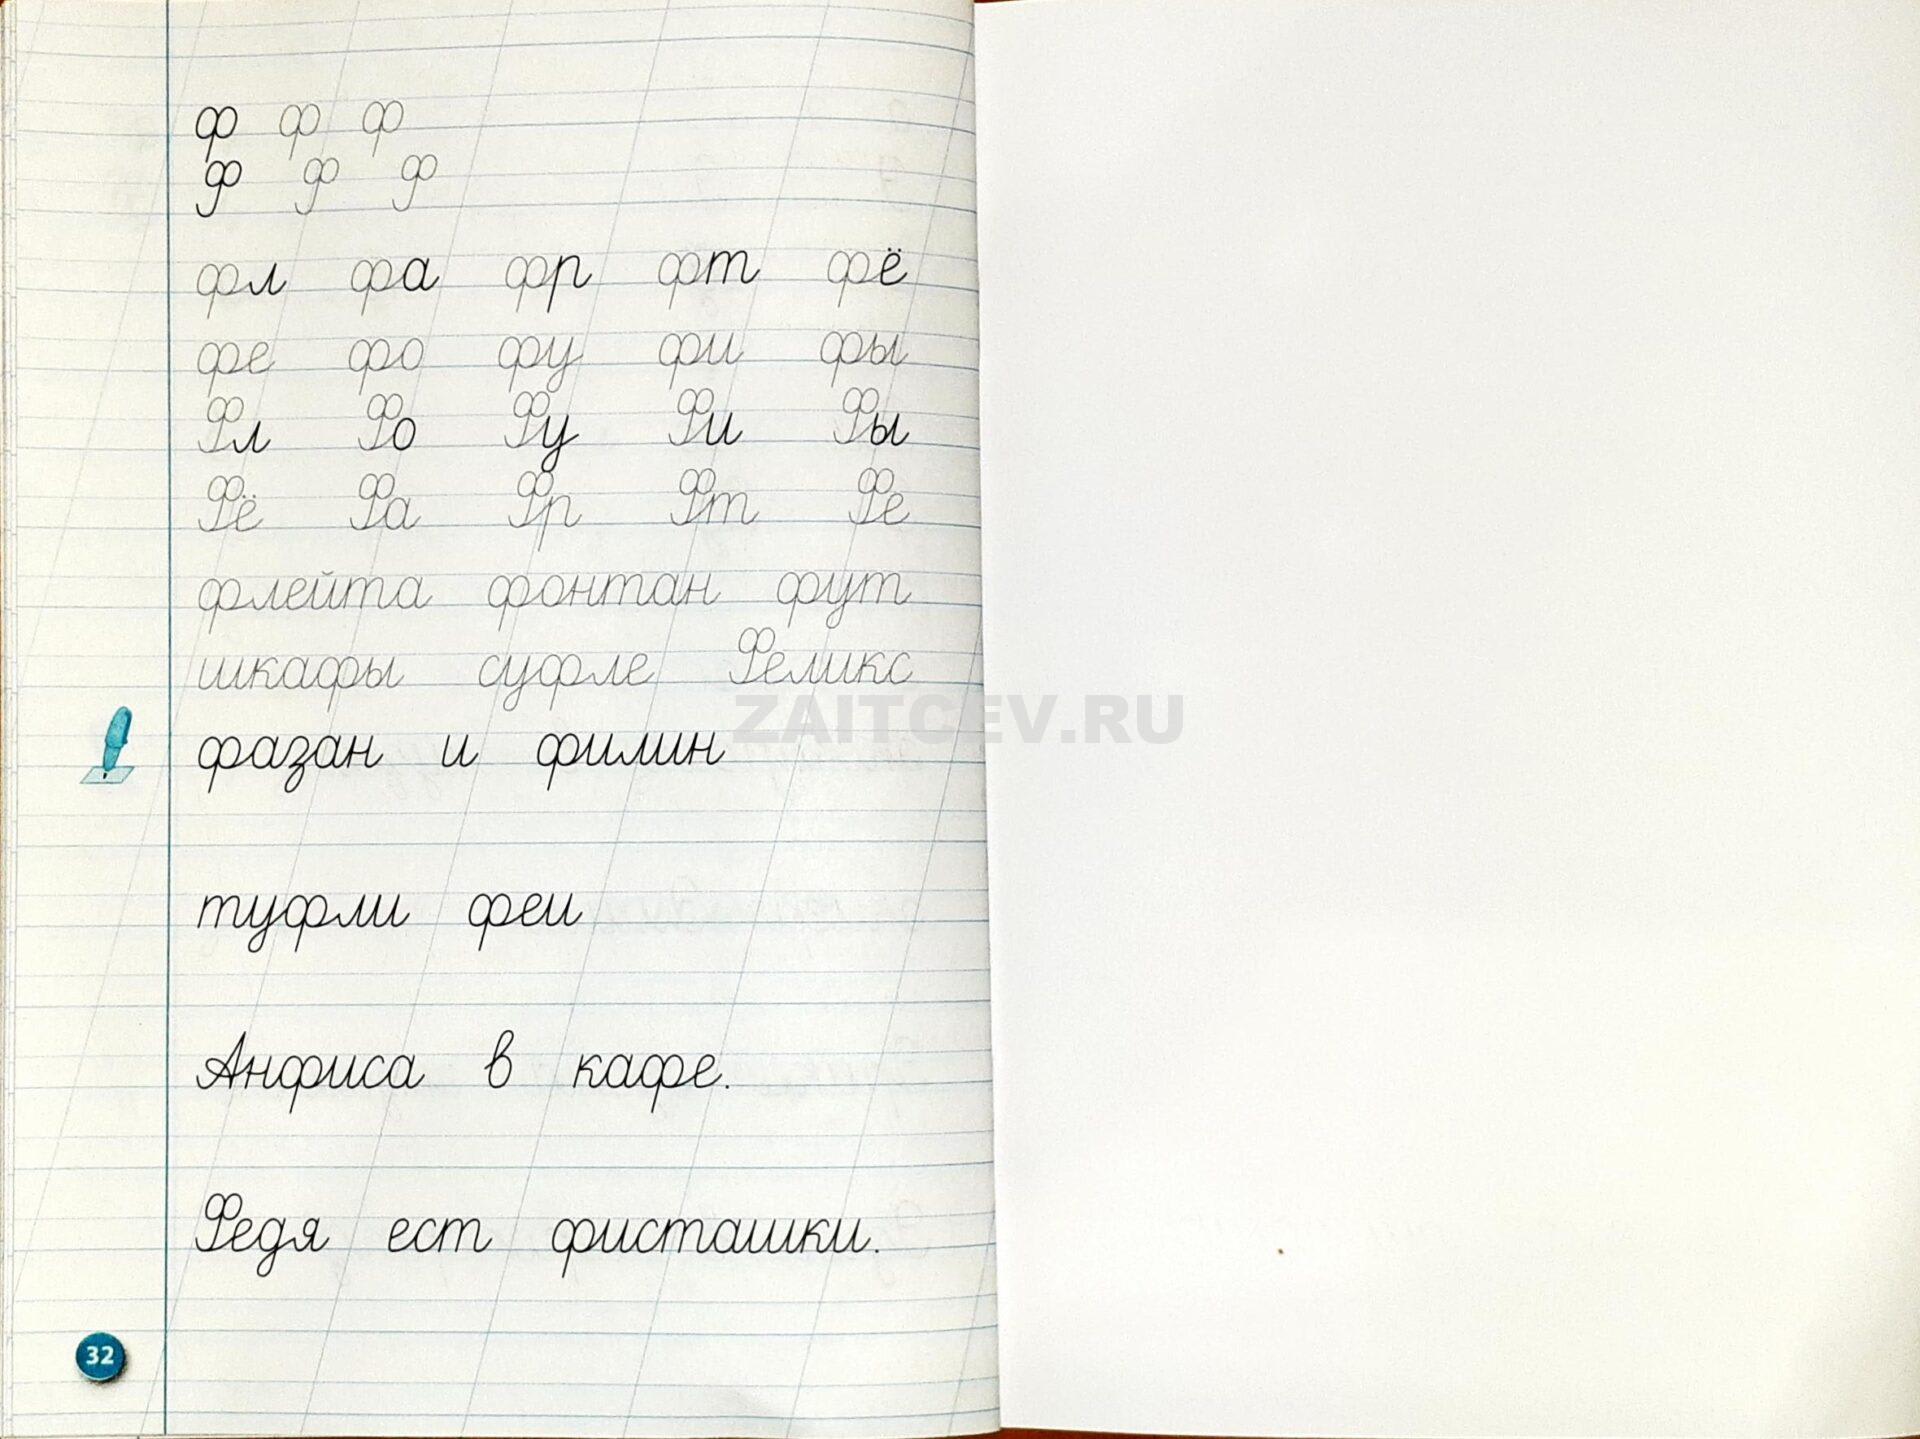 ф ф ф
Ф Ф Ф
фл фа фр фт фё
фе фо фу фи фы
Фл Фо Фу Фи Фы
Фё Фа Фр Фт Фе
флейта фонтан фут
шкафы суфле Феликс
ZAITCEV.RU
фазан и филин
туфли феи
Анфиса в кафе.
Федя ест фисташки.
32